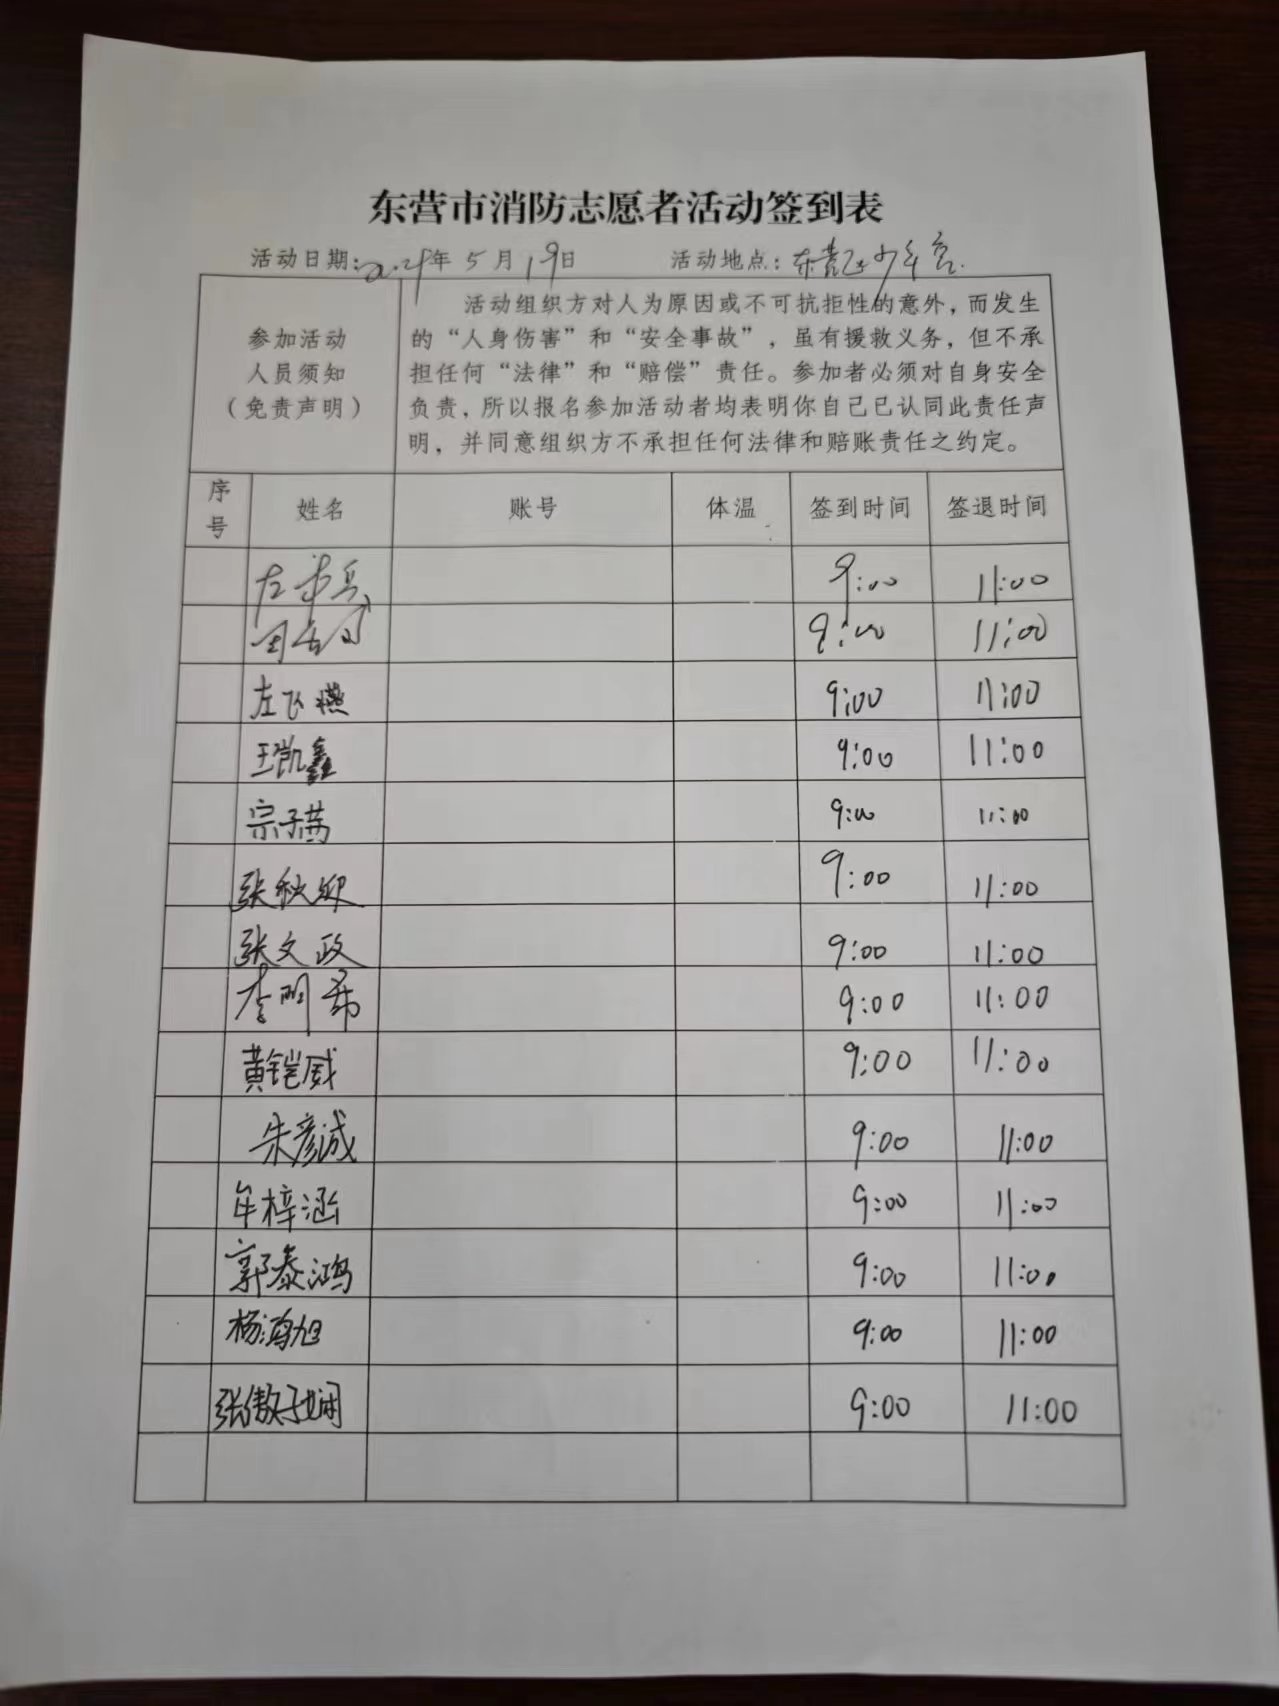 东营市消防志愿者活动签到表
活动日期: 年 5 月 19 日 活动地点: 东 少年宫.
参加活动
人员须知
（免责声明）
活动组织方对人为原因或不可抗拒性的意外，而发生
的“人身伤害”和“安全事故”，虽有援救义务，但不承
担任何“法律”和“赔偿”责任。参加者必须对自身安全
负责，所以报名参加活动者均表明你自己已认同此责任声
明，并同意组织方不承担任何法律和赔账责任之约定。
序号 姓名 账号 体温 签到时间 签退时间
左 9:00 11:00
9:00 11:00
左飞燕 9:00 11:00
王凯鑫 9:00 11:00
宗子 9:00 11:00
张秋 9:00 11:00
张文政 9:00 11:00
李明希 9:00 11:00
黄铠威 9:00 11:00
朱彦诚 9:00 11:00
牟梓涵 9:00 11:00
郭泰鸿 9:00 11:00
杨鸿旭 9:00 11:00
张傲子娴 9:00 11:00